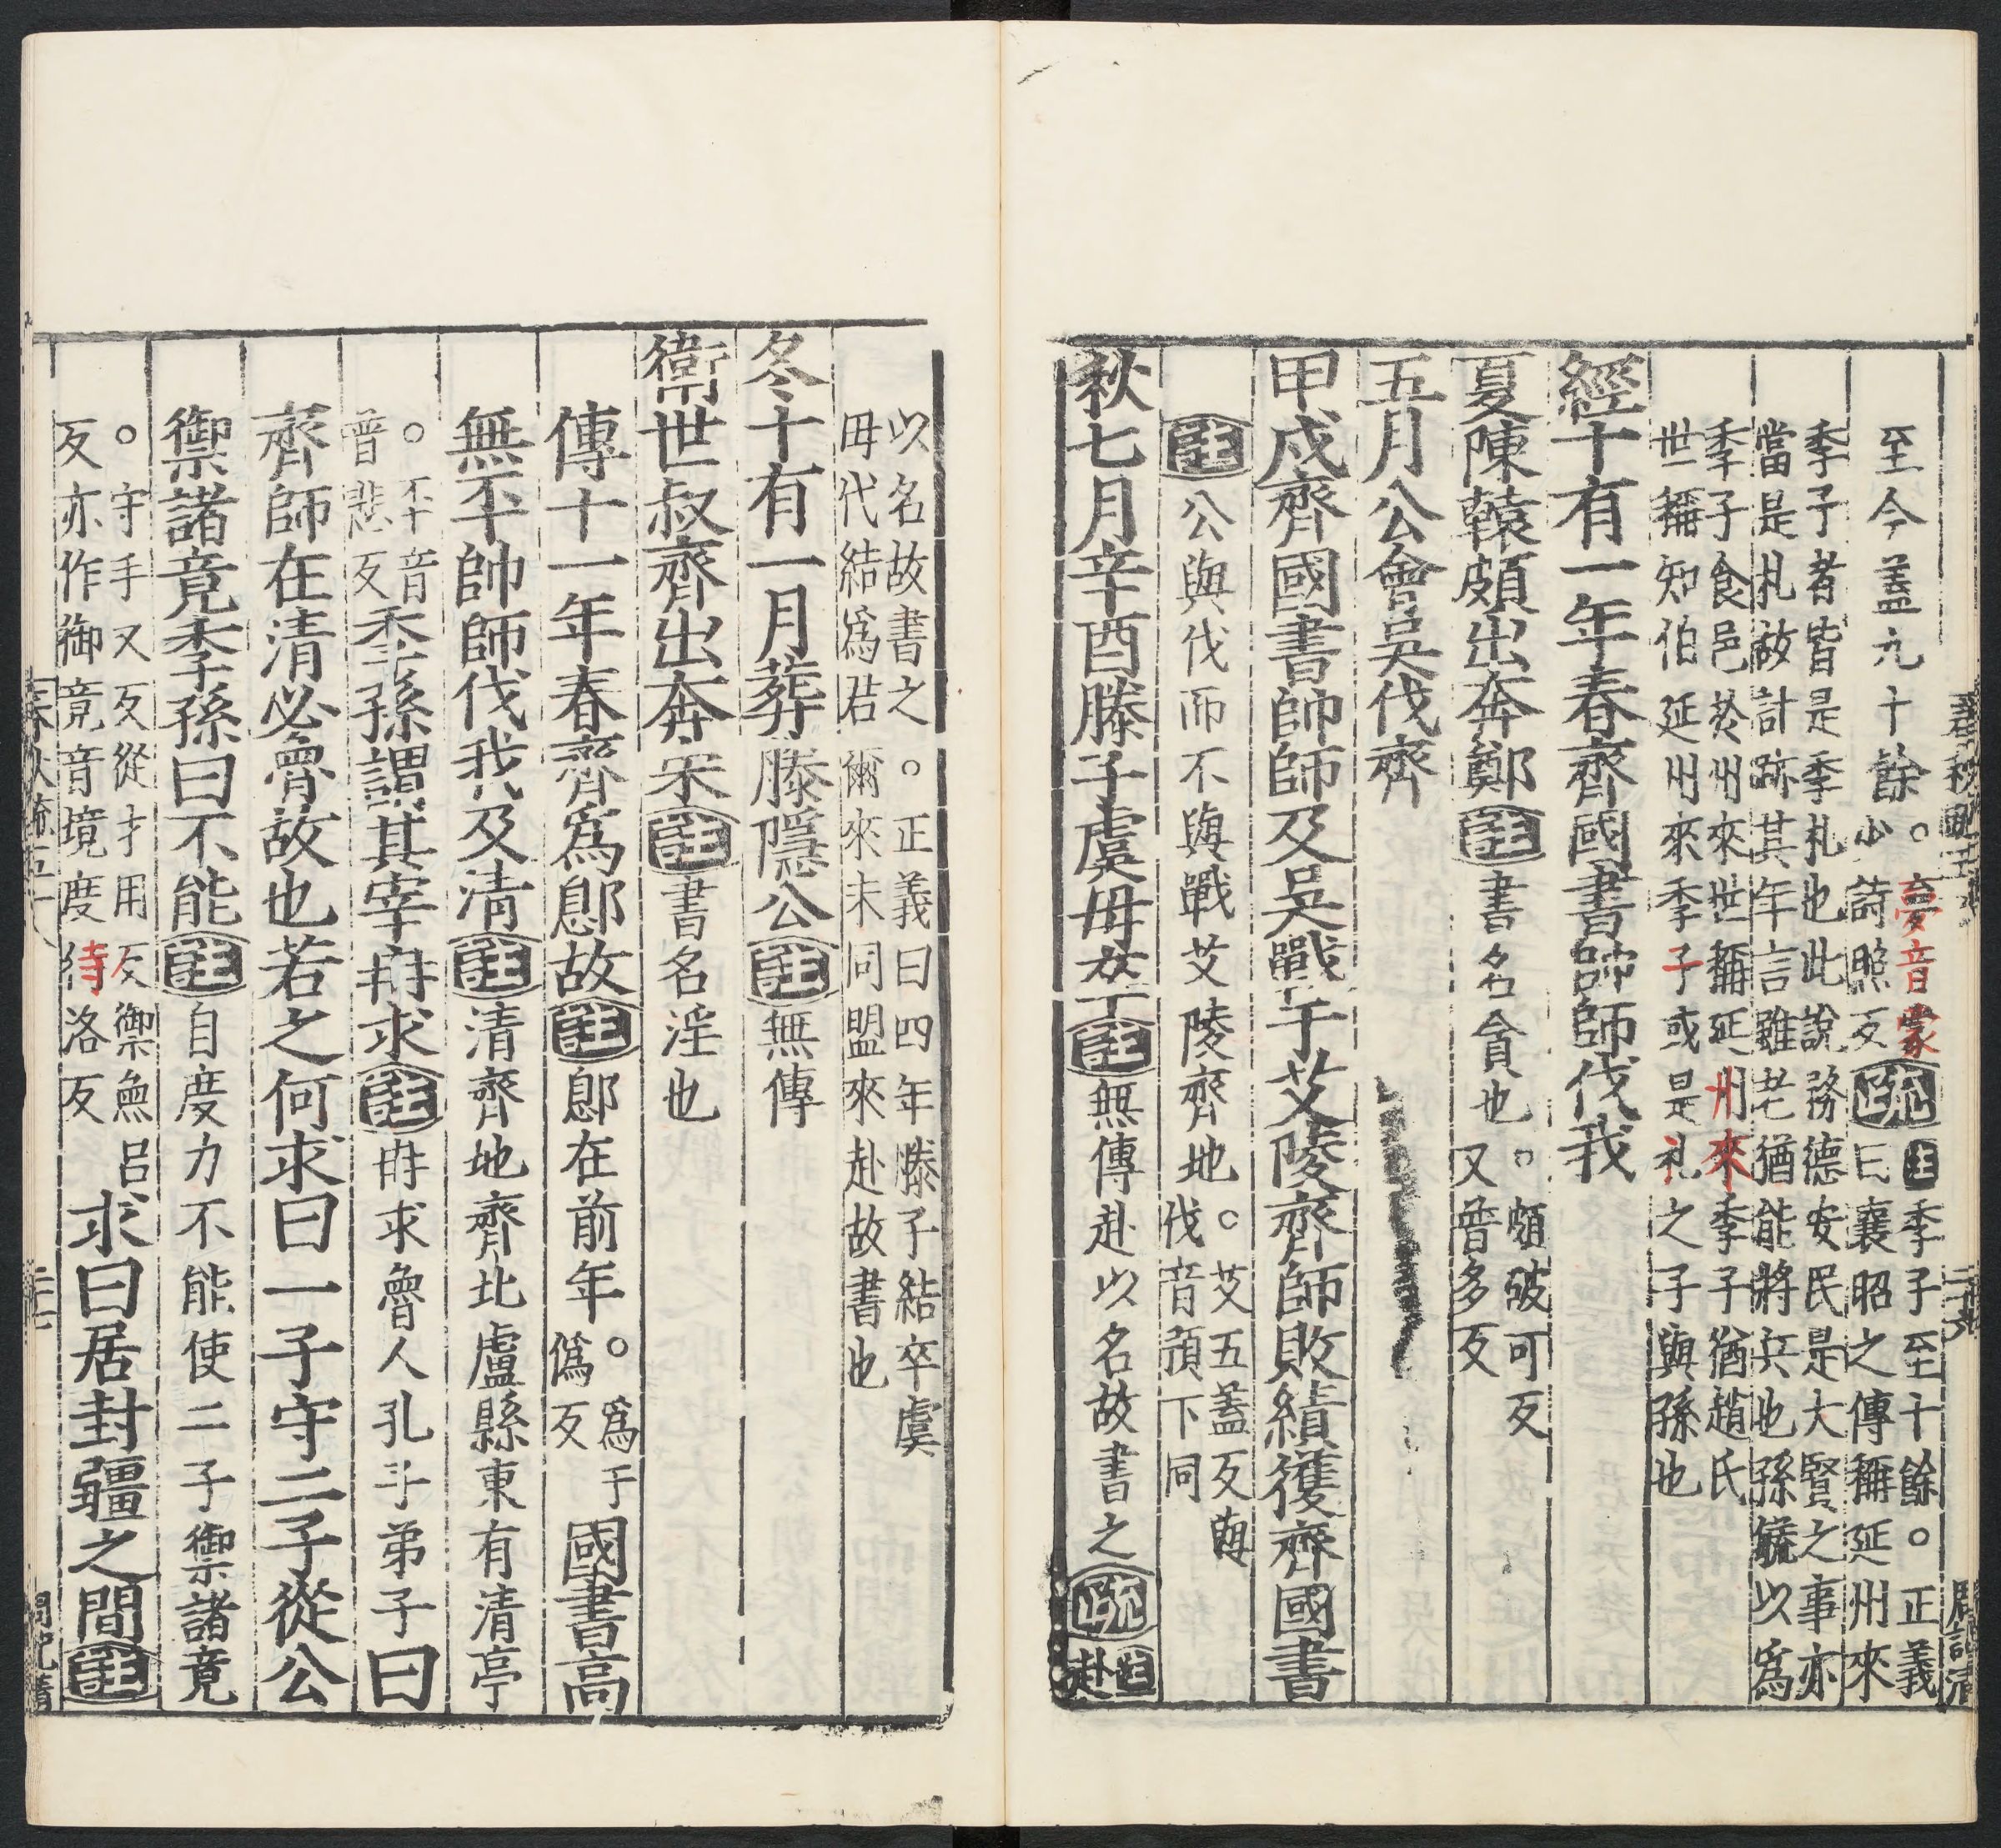 至今蓋九十餘。夢音蒙少詩照反疏注季子至十餘。正義曰襄昭之傳稱延州來
季子者皆是季札也此說務德安民是大賢之事亦當是札故計跡其年言雖老猶能將兵也孫毓以爲
季子食邑於州來世稱延州來季子猶趙氏世稱知伯延州來季子或是札之子與孫也
經十有一年春齊國書帥師伐我
夏陳轅頗出奔鄭註書名貪也。頗破可反又普多反
五月公會吳伐齊
甲戌齊國書帥師及吳戰于艾陵齊師敗績獲齊國書
註公與伐而不與戰艾陵齊地。艾五蓋反與伐音預下同
秋七月辛酉滕子虞毋卒註無傳赴以名故書之疏注赴
以名故書之。正義曰四年滕子結卒虞毋代結爲君爾來未同盟來赴故書也
冬十有一月葬滕隱公註無傳
衛世叔齊出奔宋註書名淫也
傳十一年春齊爲郎故註郎在前年。爲于僞反國書高
無丕帥師伐我及清註清齊地齊北盧縣東有清亭
。丕音普悲反季孫謂其宰冉求註冉求魯人孔子弟子曰
齊師在清必魯故也若之何求曰一子守二子從公
禦諸竟季孫曰不能註自度力不能使二子禦諸竟
。守手又反從才用反禦魚呂反亦作御竟音境度待洛反求曰居封疆之間註